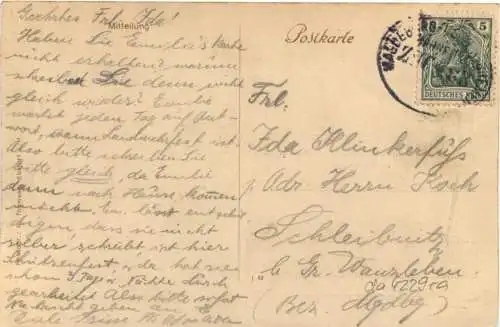 Geehrtes Frl. Ida!
Mitteilung
Haben Sie Emilie's Karte
nicht erhalten? warum
schreiben Sie denn nicht
gleich wieder? Emilie
wartet jeden Tag auf Ant-
wort, wann Landwehrfest ist.
Also bitte schreiben Sie
bitte gleich, da Emilie
dann nach Hause kommen
möchte. Em. lässt entschul-
digen, dass sie nicht
selber schreibt ist hier
Schützenfest, da hat sie
schon 3 Tage u. Nächte durch
gearbeitet Also bitte sofort
Nachricht geben an E.
Postkarte
MAGDEBURG
5
DEUTSCHES
Frl.
Ida Klinkerfuß
p. Adr. Herrn Koch
Schleibnitz
b. Gr. Wanzleben
(Bez. Mgdbg)
da4229sa